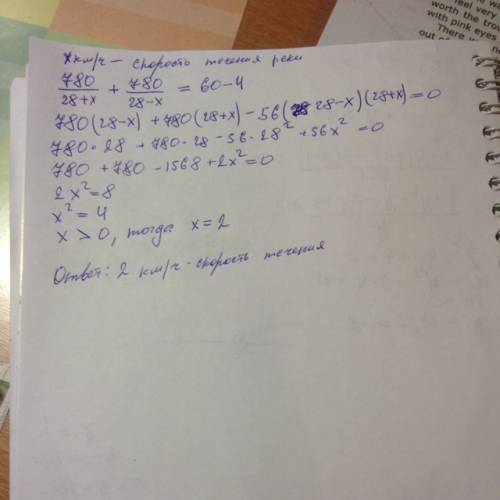 x км/ч – скорость течения реки
780/(28+x) + 780/(28-x) = 60-4
780(28-x) + 780(28+x) - 56(28-x)(28+x)=0
780·28 + 780·28 - 56·28² + 56x² = 0
780 + 780 - 1568 + 2x² = 0
2x²=8
x² = 4
x > 0, тогда x = 2
Ответ: 2 км/ч - скорость течения
feel very
worth the trou
with pink eyes
out o
There i